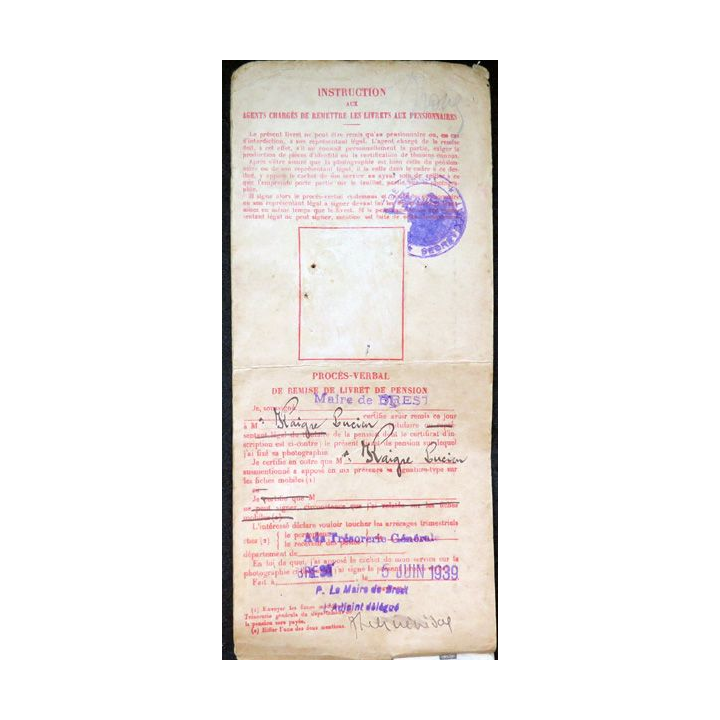 INSTRUCTION
AUX
AGENTS CHARGÉS DE REMETTRE LES LIVRETS AUX PENSIONNAIRES
Le présent livret ne peut être remis qu'au pensionnaire ou, en cas
d'interdiction, à son représentant légal. L'agent chargé de la remise
doit, à cet effet, s'il ne connaît personnellement la partie, exiger la
production de pièces d'identité ou la certification de témoins connus.
Après s'être assuré que la photographie est bien celle du pension-
naire ou de son représentant légal, il la colle dans le cadre ci-des-
sous, y appose le cachet de son service en ayant soin de
que l'empreinte porte partie sur le feuillet, partie sur la photogra-
phie.
Il signe alors le procès-verbal ci-dessous et
ou son représentant légal à signer devant lui les
mobiles en même temps que le livret. Si le
sentant légal ne peut signer, mention est faite de
SECRÉTA
PROCÈS-VERBAL
DE REMISE DE LIVRET DE PENSION
Maire de BREST
Je, soussigné
certifie avoir remis ce jour
à M. Kaigre Lucien titulaire
sentant légal du titulaire de la pension dont le certificat d'in-
scription est ci-contre; le présent livret de pension sur lequel
j'ai fixé sa photographie.
Je certifie en outre que M. Kaigre Lucien
susmentionné a apposé en ma présence sa signature-type sur
les fiches mobiles (2)
ou
Je certifie que M
ne peut signer, circonstance que j'ai relatée sur les fiches
mobiles (2).
L'intéressé déclare vouloir toucher les arrérages trimestriels
chez (2) le percepteur
le receveur des postes
A la Trésorerie Générale
département de
En foi de quoi, j'ai apposé le cachet de mon service sur la
photographie et j'ai signé le présent
Fait à BREST, le 5 JUIN 1939
P. Le Maire de Brest
l'Adjoint délégué
(1) Envoyer les fiches
Trésorerie générale du département
la pension sera payée.
(2) Biffer l'une des deux mentions.